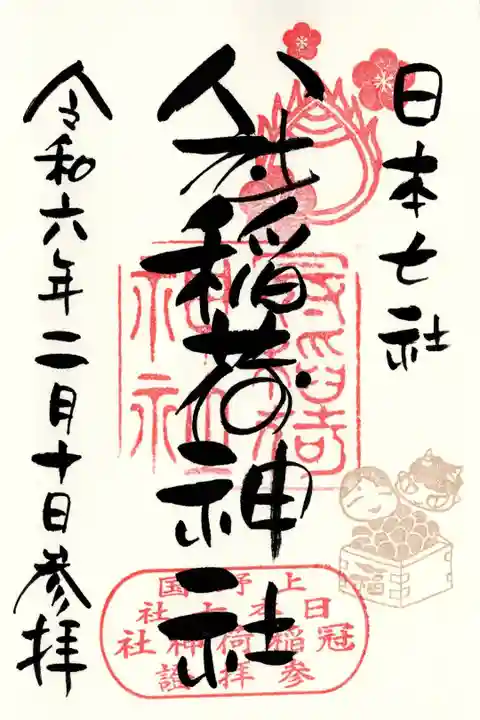 日本七社
冠稲荷神社
令和六年二月十日参拝
冠稲荷
神社
上野国
日本七社
冠稲荷神社
参拝證